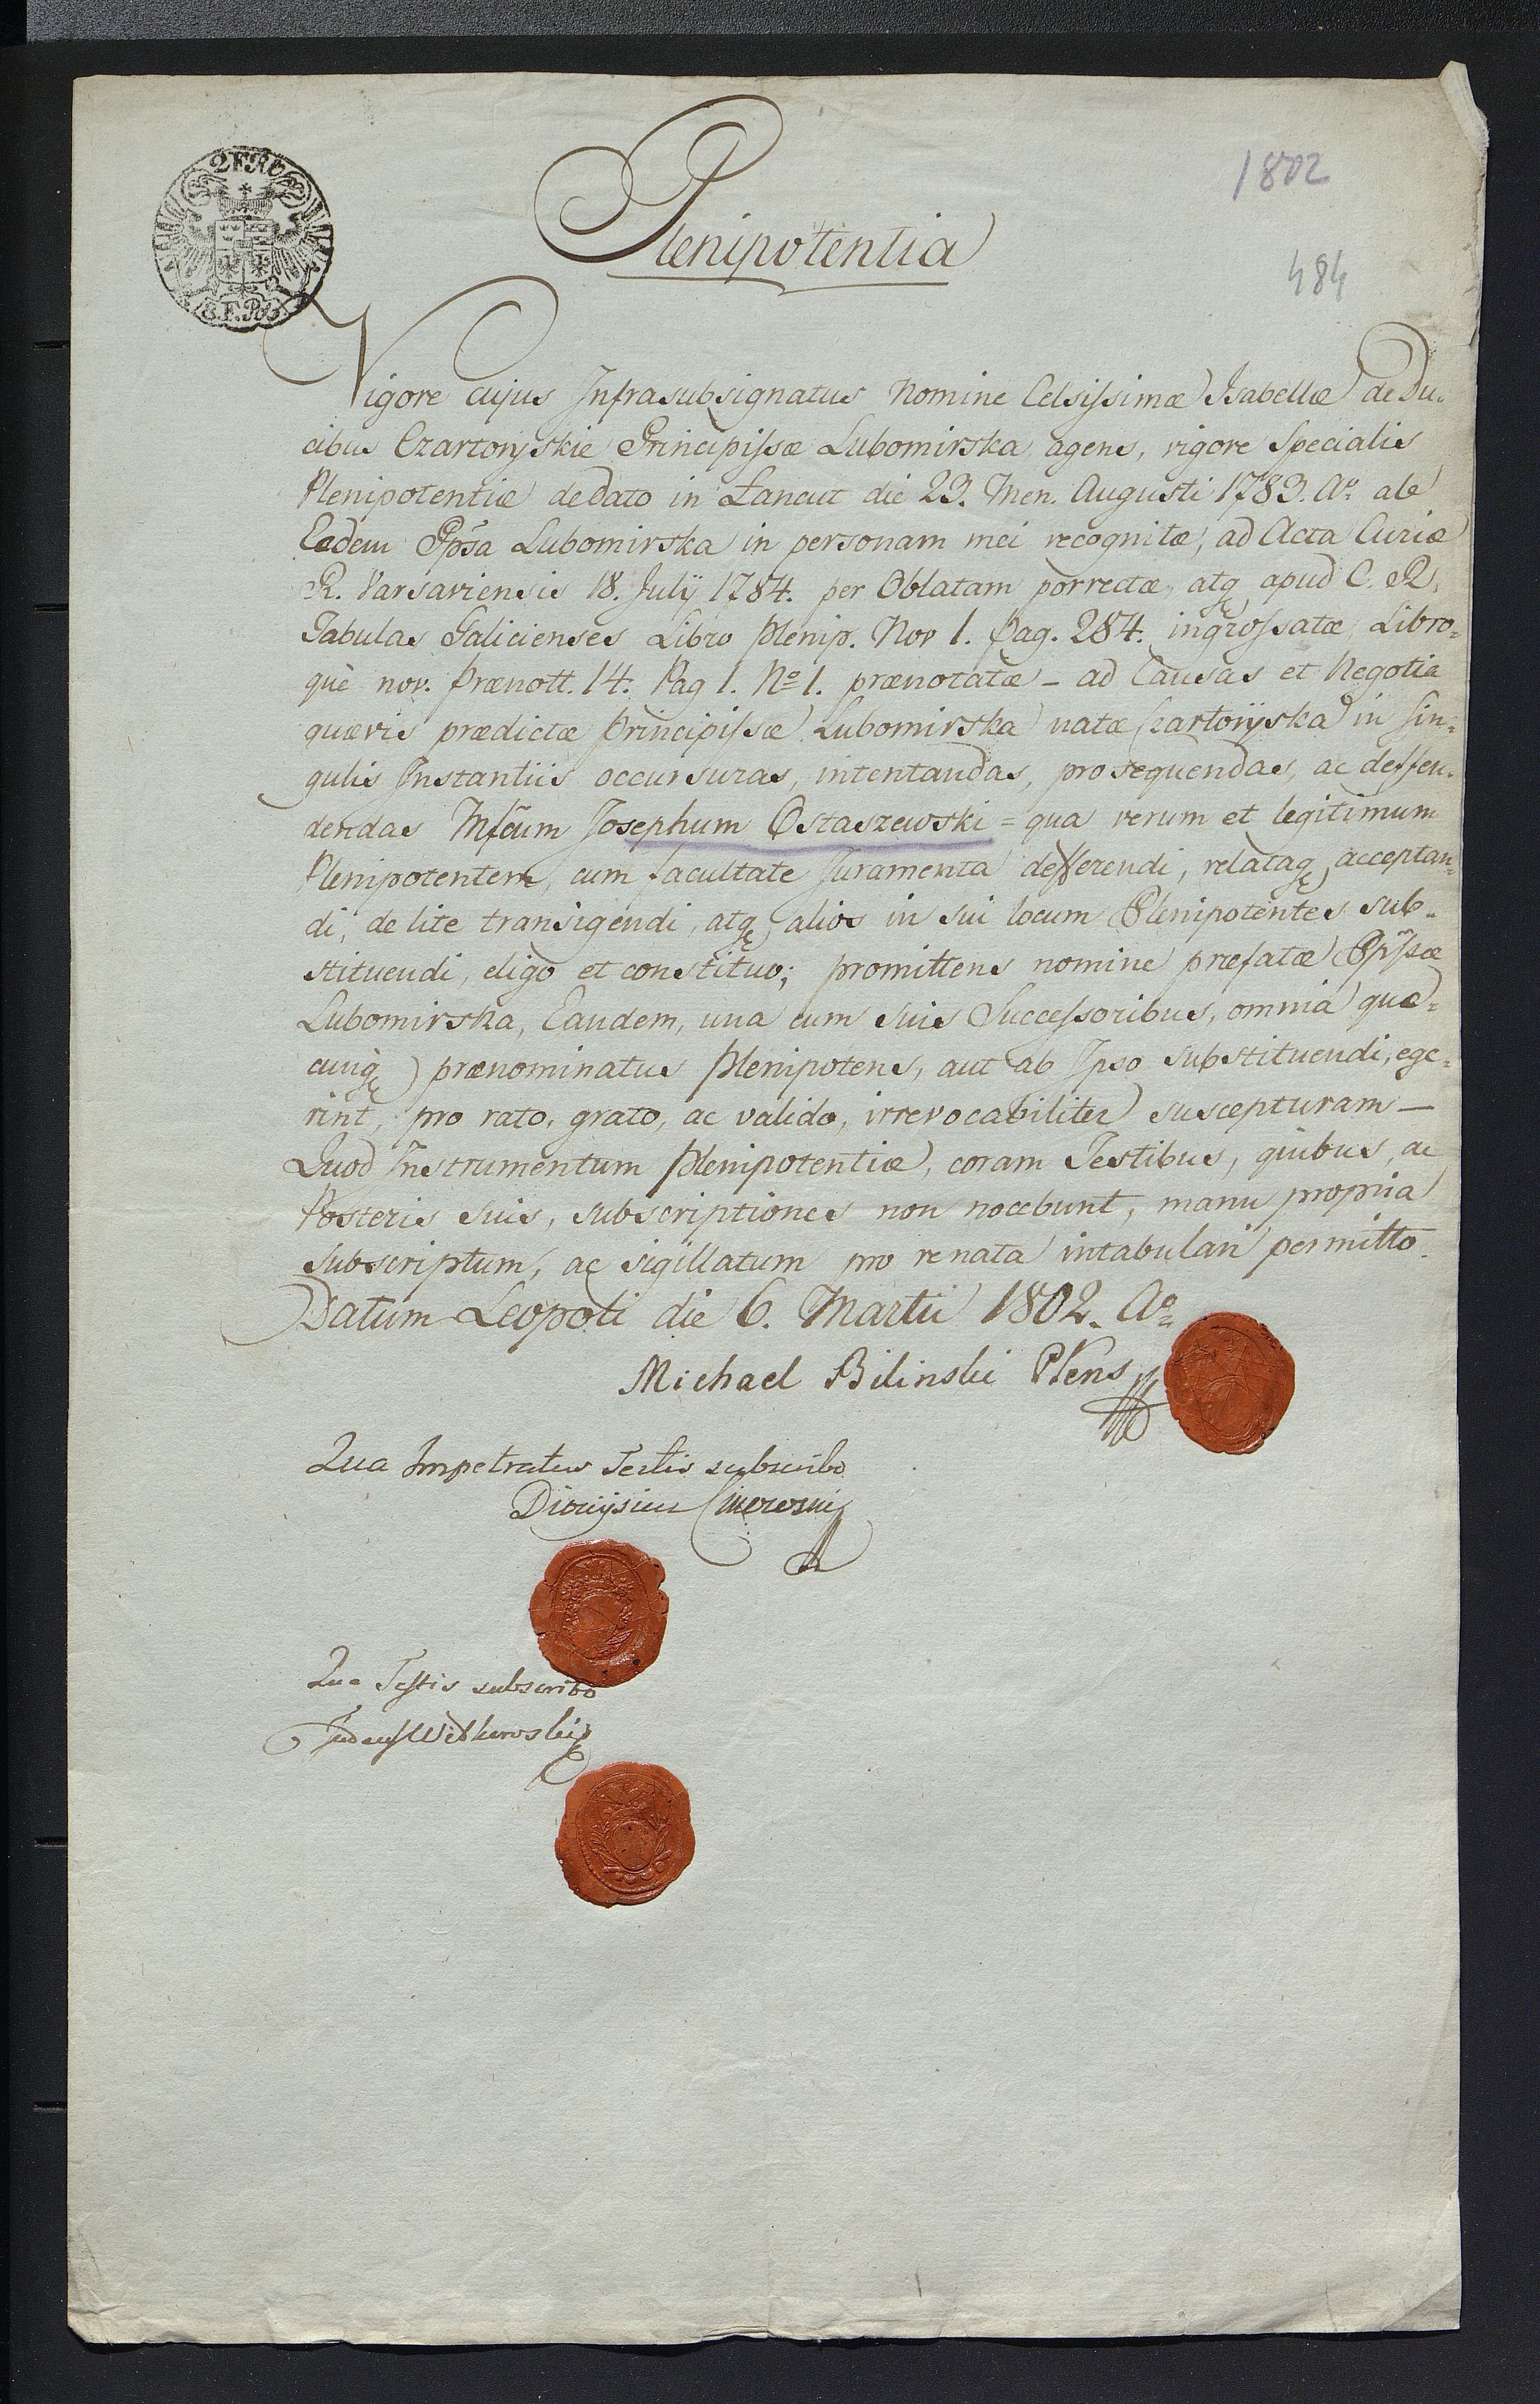 2 F. R 6
1802
Plenipotentia
484
Vigore cujus Infrasubsignatus Nomine Celsissimæ Isabellæ de Du=
cibus Czartoryskie Principissæ Lubomirska agens, vigore Specialis
Plenipotentiæ de Dato in Łancut die 23. Men. Augusti 1783. Aº ab
Eadem Ppsa Lubomirska in personam mei recognitæ, ad Acta Curiæ
R. Varsaviensis 18. Julÿ 1784. per Oblatam porrectæ, atq apud C. R.
Tabulas Galicienses Libro Plenip. Nov 1. Pag. 284. ingrossatæ, Libro=
què nov. Prænott. 14. Pag 1. Nº 1. prænotatæ – ad Causas et Negotia
quævis prædictæ Principissæ Lubomirska natæ Czartorÿska in Sin=
gulis Instantiis occursuras, intentandas, prosequendas, ac deffen=
dendas Mfcum Josephum Ostaszewski = qua verum et legitimum
Plenipotentem, cum facultate Juramenta defferendi, relataq acceptan=
di, de lite transigendi, atq alios in sui locum Plenipotentes sub=
stituendi, eligo et constituo; promittens nomine præfatæ Ppssæ
Lubomirska, Eandem, una cum suis Successoribus, omnia quæ=
cunq prænominatus Plenipotens, aut ab Ipso substituendi, ege=
rint, pro rato, grato, ac valido, irrevocabiliter suscepturam –
Quod Instrumentum Plenipotentiæ, coram Testibus, quibus, ac
Posteris suis, subscriptiones non nocebunt, manu propria
subscriptum, ac sigillatum pro re nata intabulari permitto.
Datum Leopoli die 6. Martii 1802. Aº
Michael Bilinski Plens
Qua Impetratus Testis subscribo
Dionÿsius
Qua Testis subscribo
Witkowski